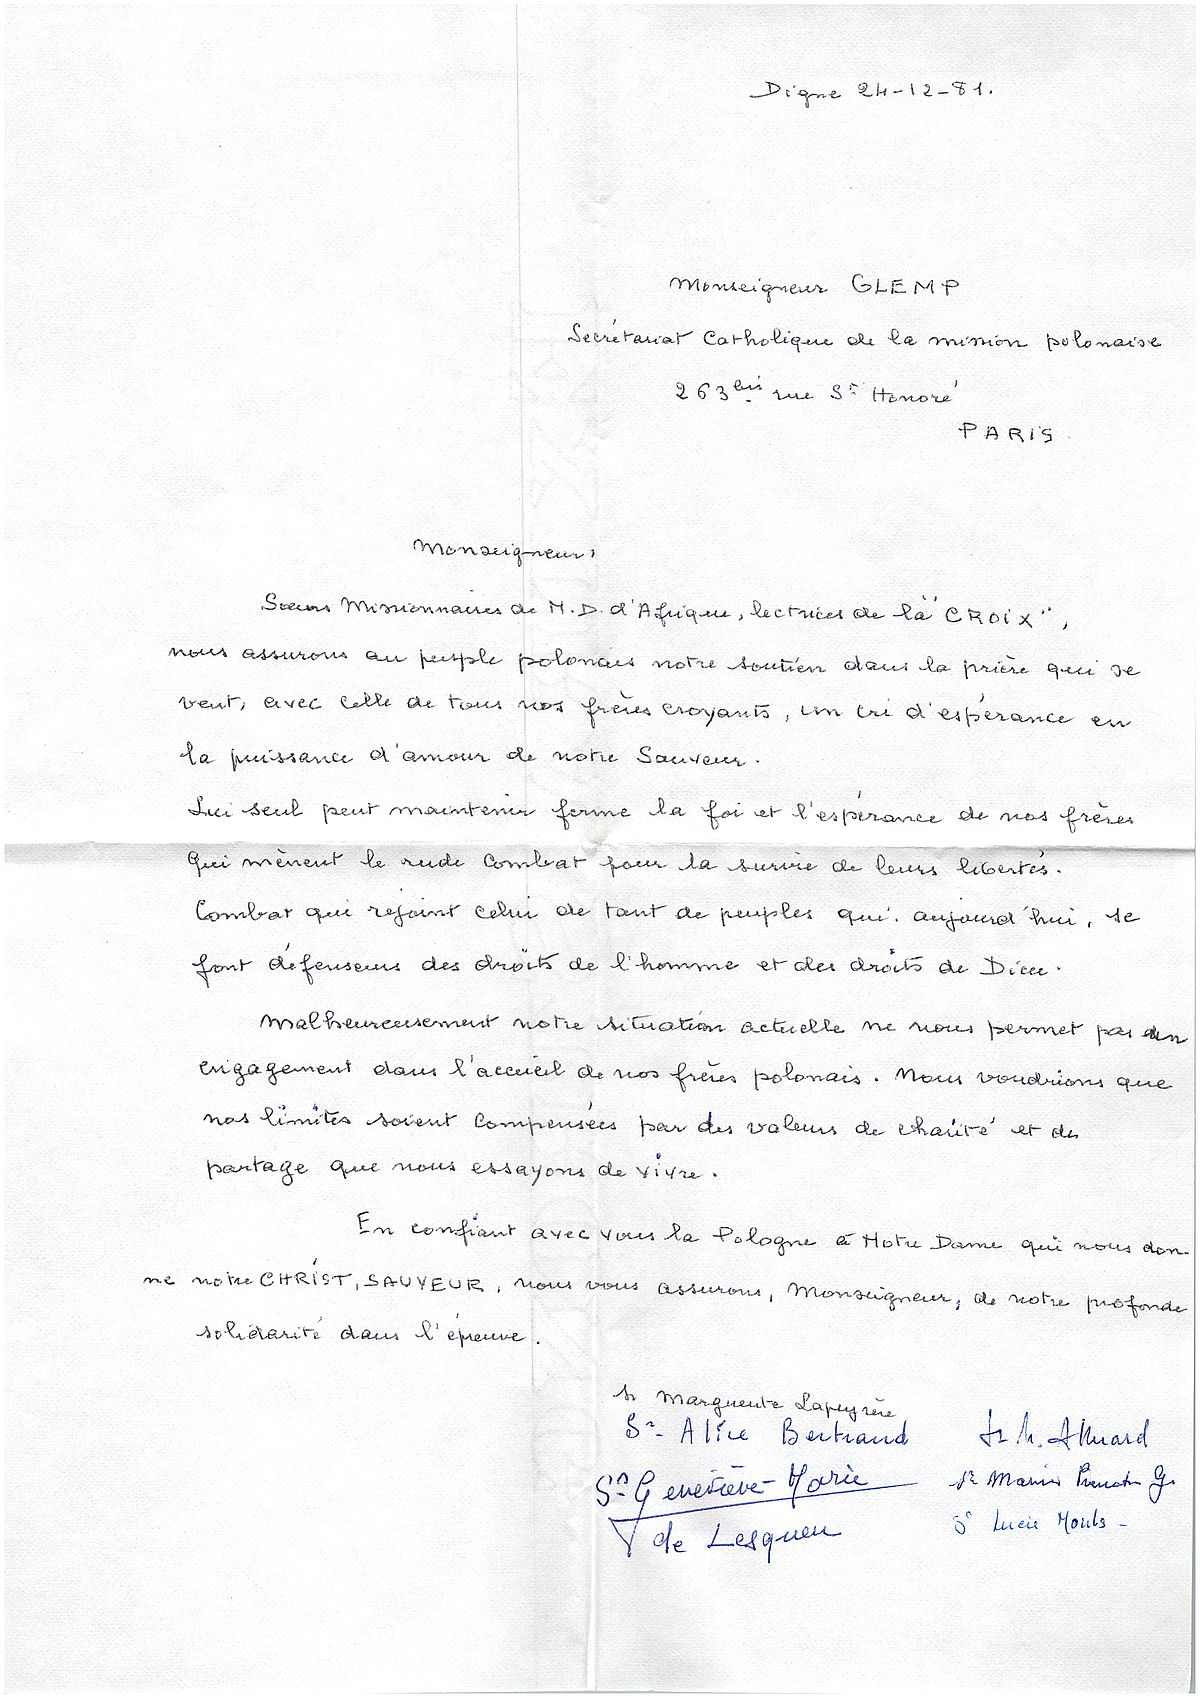 Digne 24-12-81.
Monseigneur GLEMP
Secrétariat Catholique de la mission polonaise
263 bis rue St Honoré
PARIS.
Monseigneur,
Sœurs Missionnaires de N.D. d'Afrique, lectrices de la "CROIX",
nous assurons au peuple polonais notre soutien dans la prière qui se
veut, avec celle de tous nos frères croyants, un cri d'espérance en
la puissance d'amour de notre Sauveur.
Lui seul peut maintenir ferme la foi et l'espérance de nos frères
qui mènent le rude combat pour la survie de leurs libertés.
Combat qui rejoint celui de tant de peuples qui, aujourd'hui, se
font défenseurs des droits de l'homme et des droits de Dieu.
Malheureusement notre situation actuelle ne nous permet pas un
engagement dans l'accueil de nos frères polonais. Nous voudrions que
nos limites soient compensées par des valeurs de charité et de
partage que nous essayons de vivre.
En confiant avec vous la Pologne à Notre Dame qui nous don-
ne notre CHRIST, SAUVEUR, nous vous assurons, Monseigneur, de notre profonde
solidarité dans l'épreuve.
Sr Marguerite Lapeyrère
Sr Alice Bertrand
Sr Geneviève-Marie
de Lesquen
Sr M.
Sr
Sr Lucie